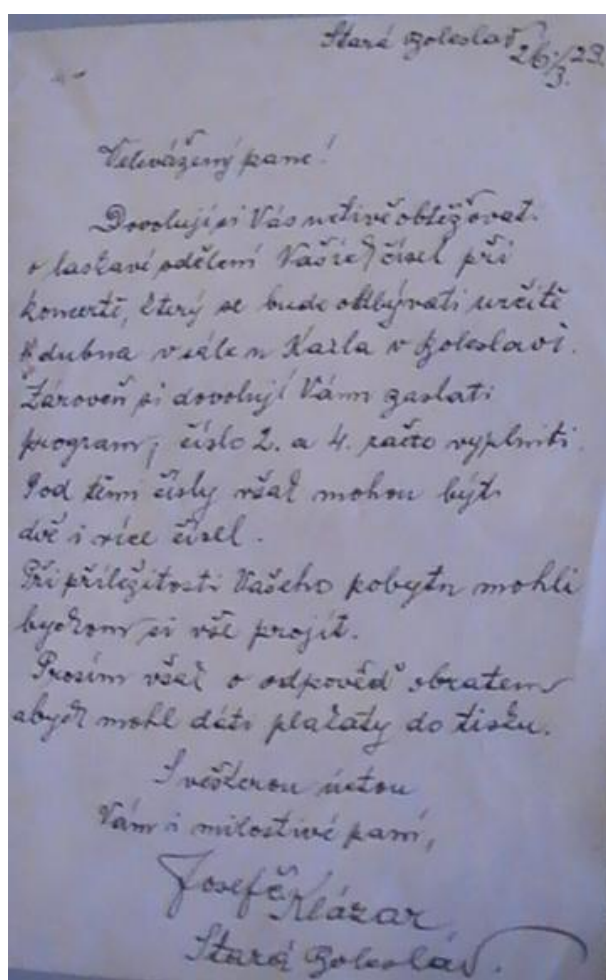 Stará Boleslav 26./3. 29.
Velevážený pane!
Dovoluji si Vás uctivě obtěžovati
o laskavé sdělení Vašich čísel při
koncertě, který se bude odbývati určitě
dubna v sále u Karla v Boleslavi.
Zároveň si dovoluji Vám zaslati
program, číslo 2. a 4. račte vyplniti.
Pod těmi čísly však mohou býti
dvě i více čísel.
Při příležitosti Vašeho pobytu mohli
bychom si vše projít.
Prosím však o odpověď obratem
abych mohl dáti plakáty do tisku.
S veškerou úctou
Vám i milostivé paní,
Josef Klázar
Stará Boleslav.